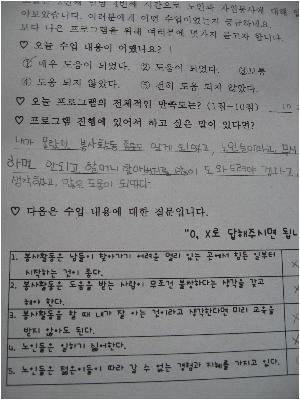 시간으로 노인과 자원봉사에 대해
아보았습니다. 여러분에게 어떤 수업이었는지 궁금하네요.
보다 나은 프로그램을 위해 여러분에게 몇가지 묻고자 합니다.
♡ 오늘 수업 내용이 어땠나요?
① 매우 도움이 되었다. ② 도움이 되었다. ③ 보통
④ 도움이 되지 않았다. ⑤ 전혀 도움 되지 않았다.
♡ 오늘 프로그램의 전체적인 만족도는? (1점~10점)
♡ 프로그램 진행에 있어서 하고 싶은 말이 있다면?
내가 몰랐던 봉사활동 알게 되었고, 노인들이라고, 무시
하면 안되고 할머니 할아버지 도와드려야
생각하고, 많은 도움이 되었다.
♡ 다음은 수업 내용에 대한 질문입니다.
"O, X로 답해주시면 됩니
1. 봉사활동은 남들이 찾아가기 어려운 멀리 있는 곳에서 힘든 일부터
시작하는 것이 좋다.
2. 봉사활동은 도움을 받는 사람이 무조건 불쌍하다는 생각을 갖고
해야 한다.
3. 봉사활동을 할 때 내가 잘 아는 것이라고 생각한다면 미리 교육을
받지 않아도 된다.
4. 노인들은 일하기 싫어한다.
5. 노인들은 젊은이들이 따라 갈 수 없는 경험과 지혜를 가지고 있다.